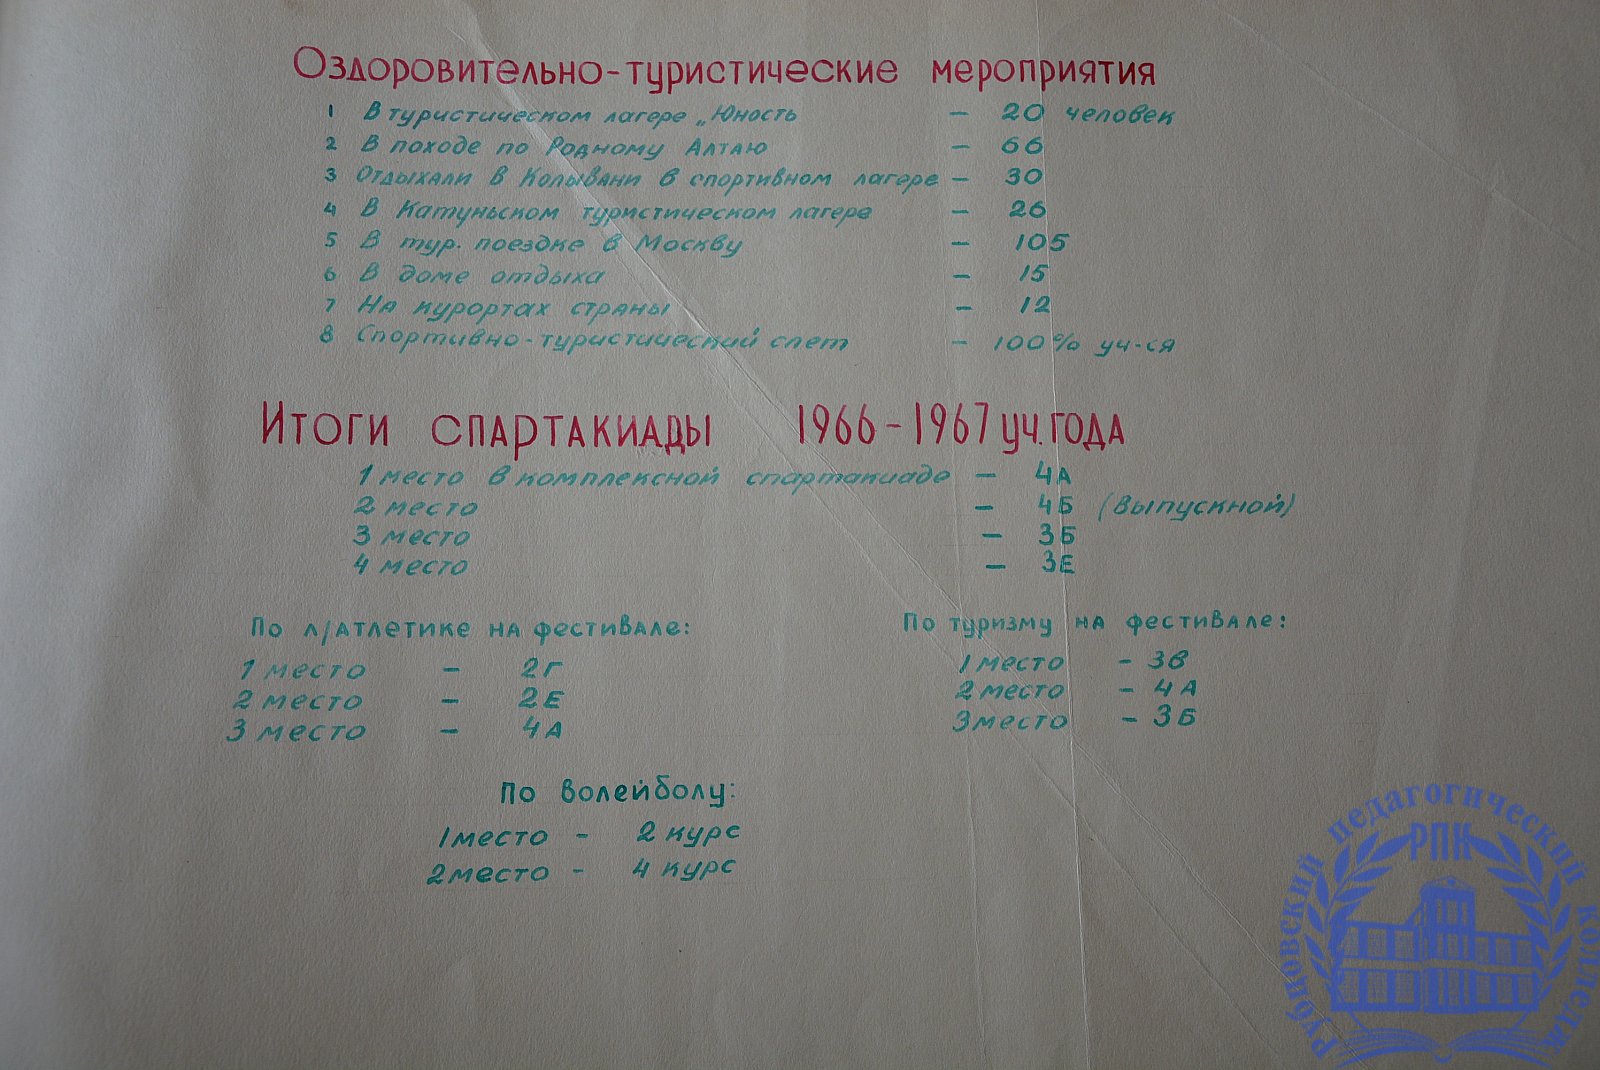 Оздоровительно-туристические мероприятия
1 В туристическом лагере „Юность — 20 человек
2 В походе по Родному Алтаю — 66
3 Отдыхали в Колывани в спортивном лагере — 30
4 В Катуньском туристическом лагере — 26
5 В тур. поездке в Москву — 105
6 В доме отдыха — 15
7 На курортах страны — 12
8 Спортивно-туристический слет — 100% уч-ся
Итоги спартакиады 1966-1967 уч. года
1 место в комплексной спартакиаде — 4А
2 место — 4Б (выпускной)
3 место — 3Б
4 место — 3Е
По л/атлетике на фестивале:
1 место — 2Г
2 место — 2Е
3 место — 4А
По туризму на фестивале:
1 место - 3В
2 место - 4А
3 место - 3Б
По волейболу:
1 место - 2 курс
2 место - 4 курс
Рубцовский педагогический колледж
РПК